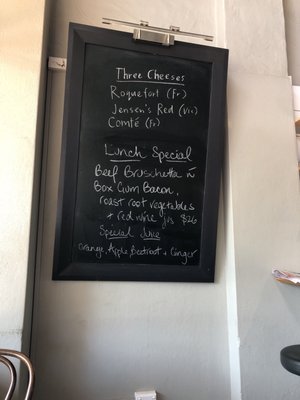 Three Cheeses
Roquefort (Fr)
Jensen's Red (Vic)
Comté (Fr)
Lunch Special
Beef Bruschetta w
Box Gum Bacon,
roast root vegetables
+ red wine jus $26
Special Juice
Orange, Apple Beetroot + Ginger